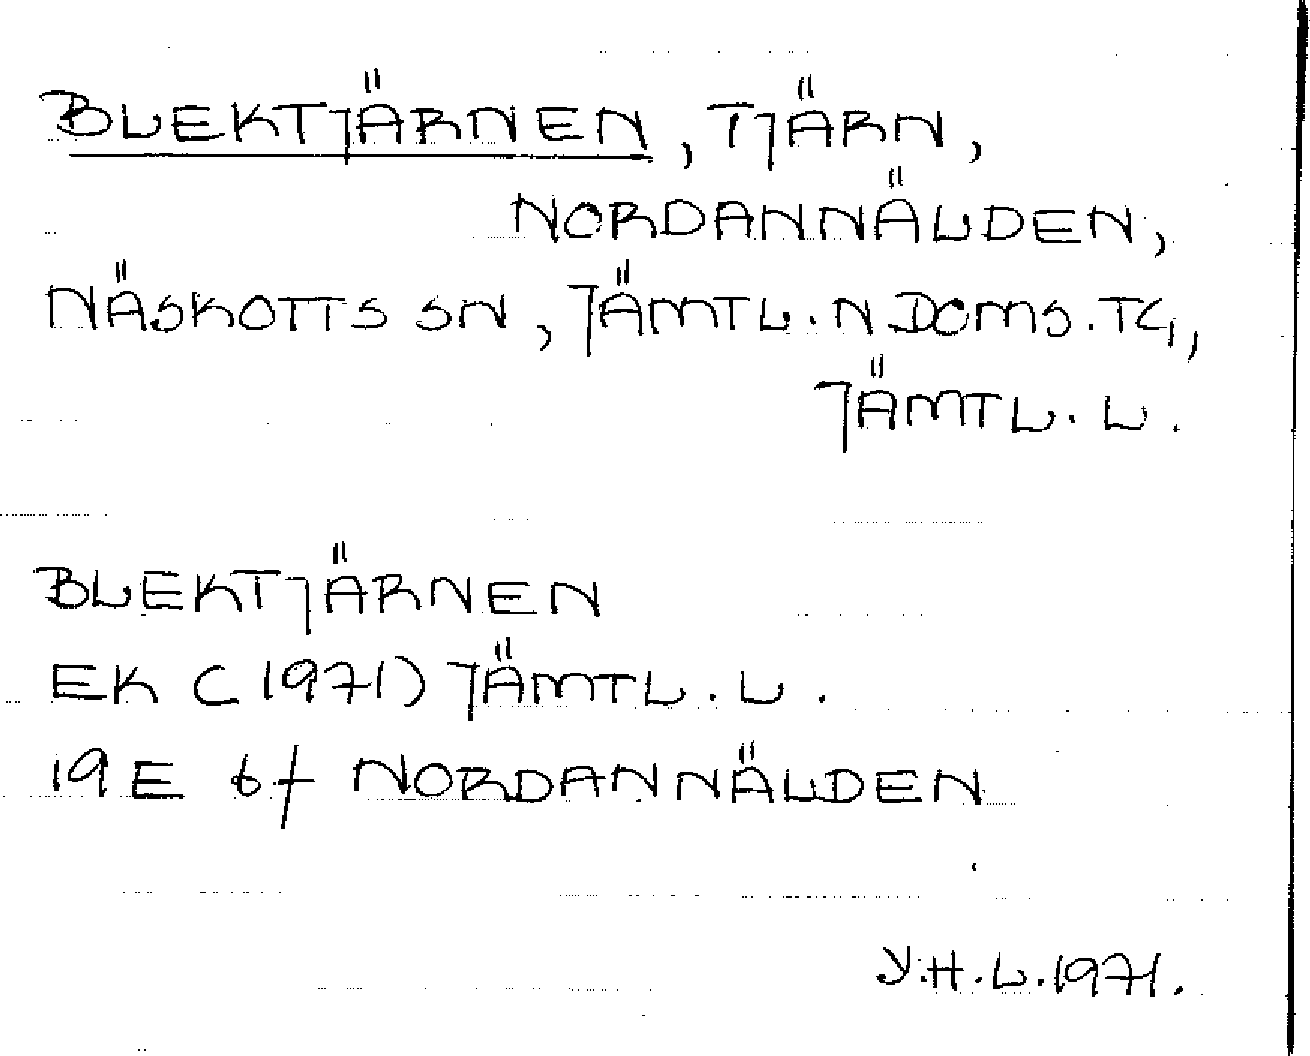 BLEKTJÄRNEN, TJÄRN,
NORDANNÄLDEN,
NÄSKOTTS SN, JÄMTL. N. DOMS. TG,
JÄMTL. L.
BLEKTJÄRNEN
EK C (1971) JÄMTL. L.
19E 6f NORDANNÄLDEN
Y.H.L. 1971.